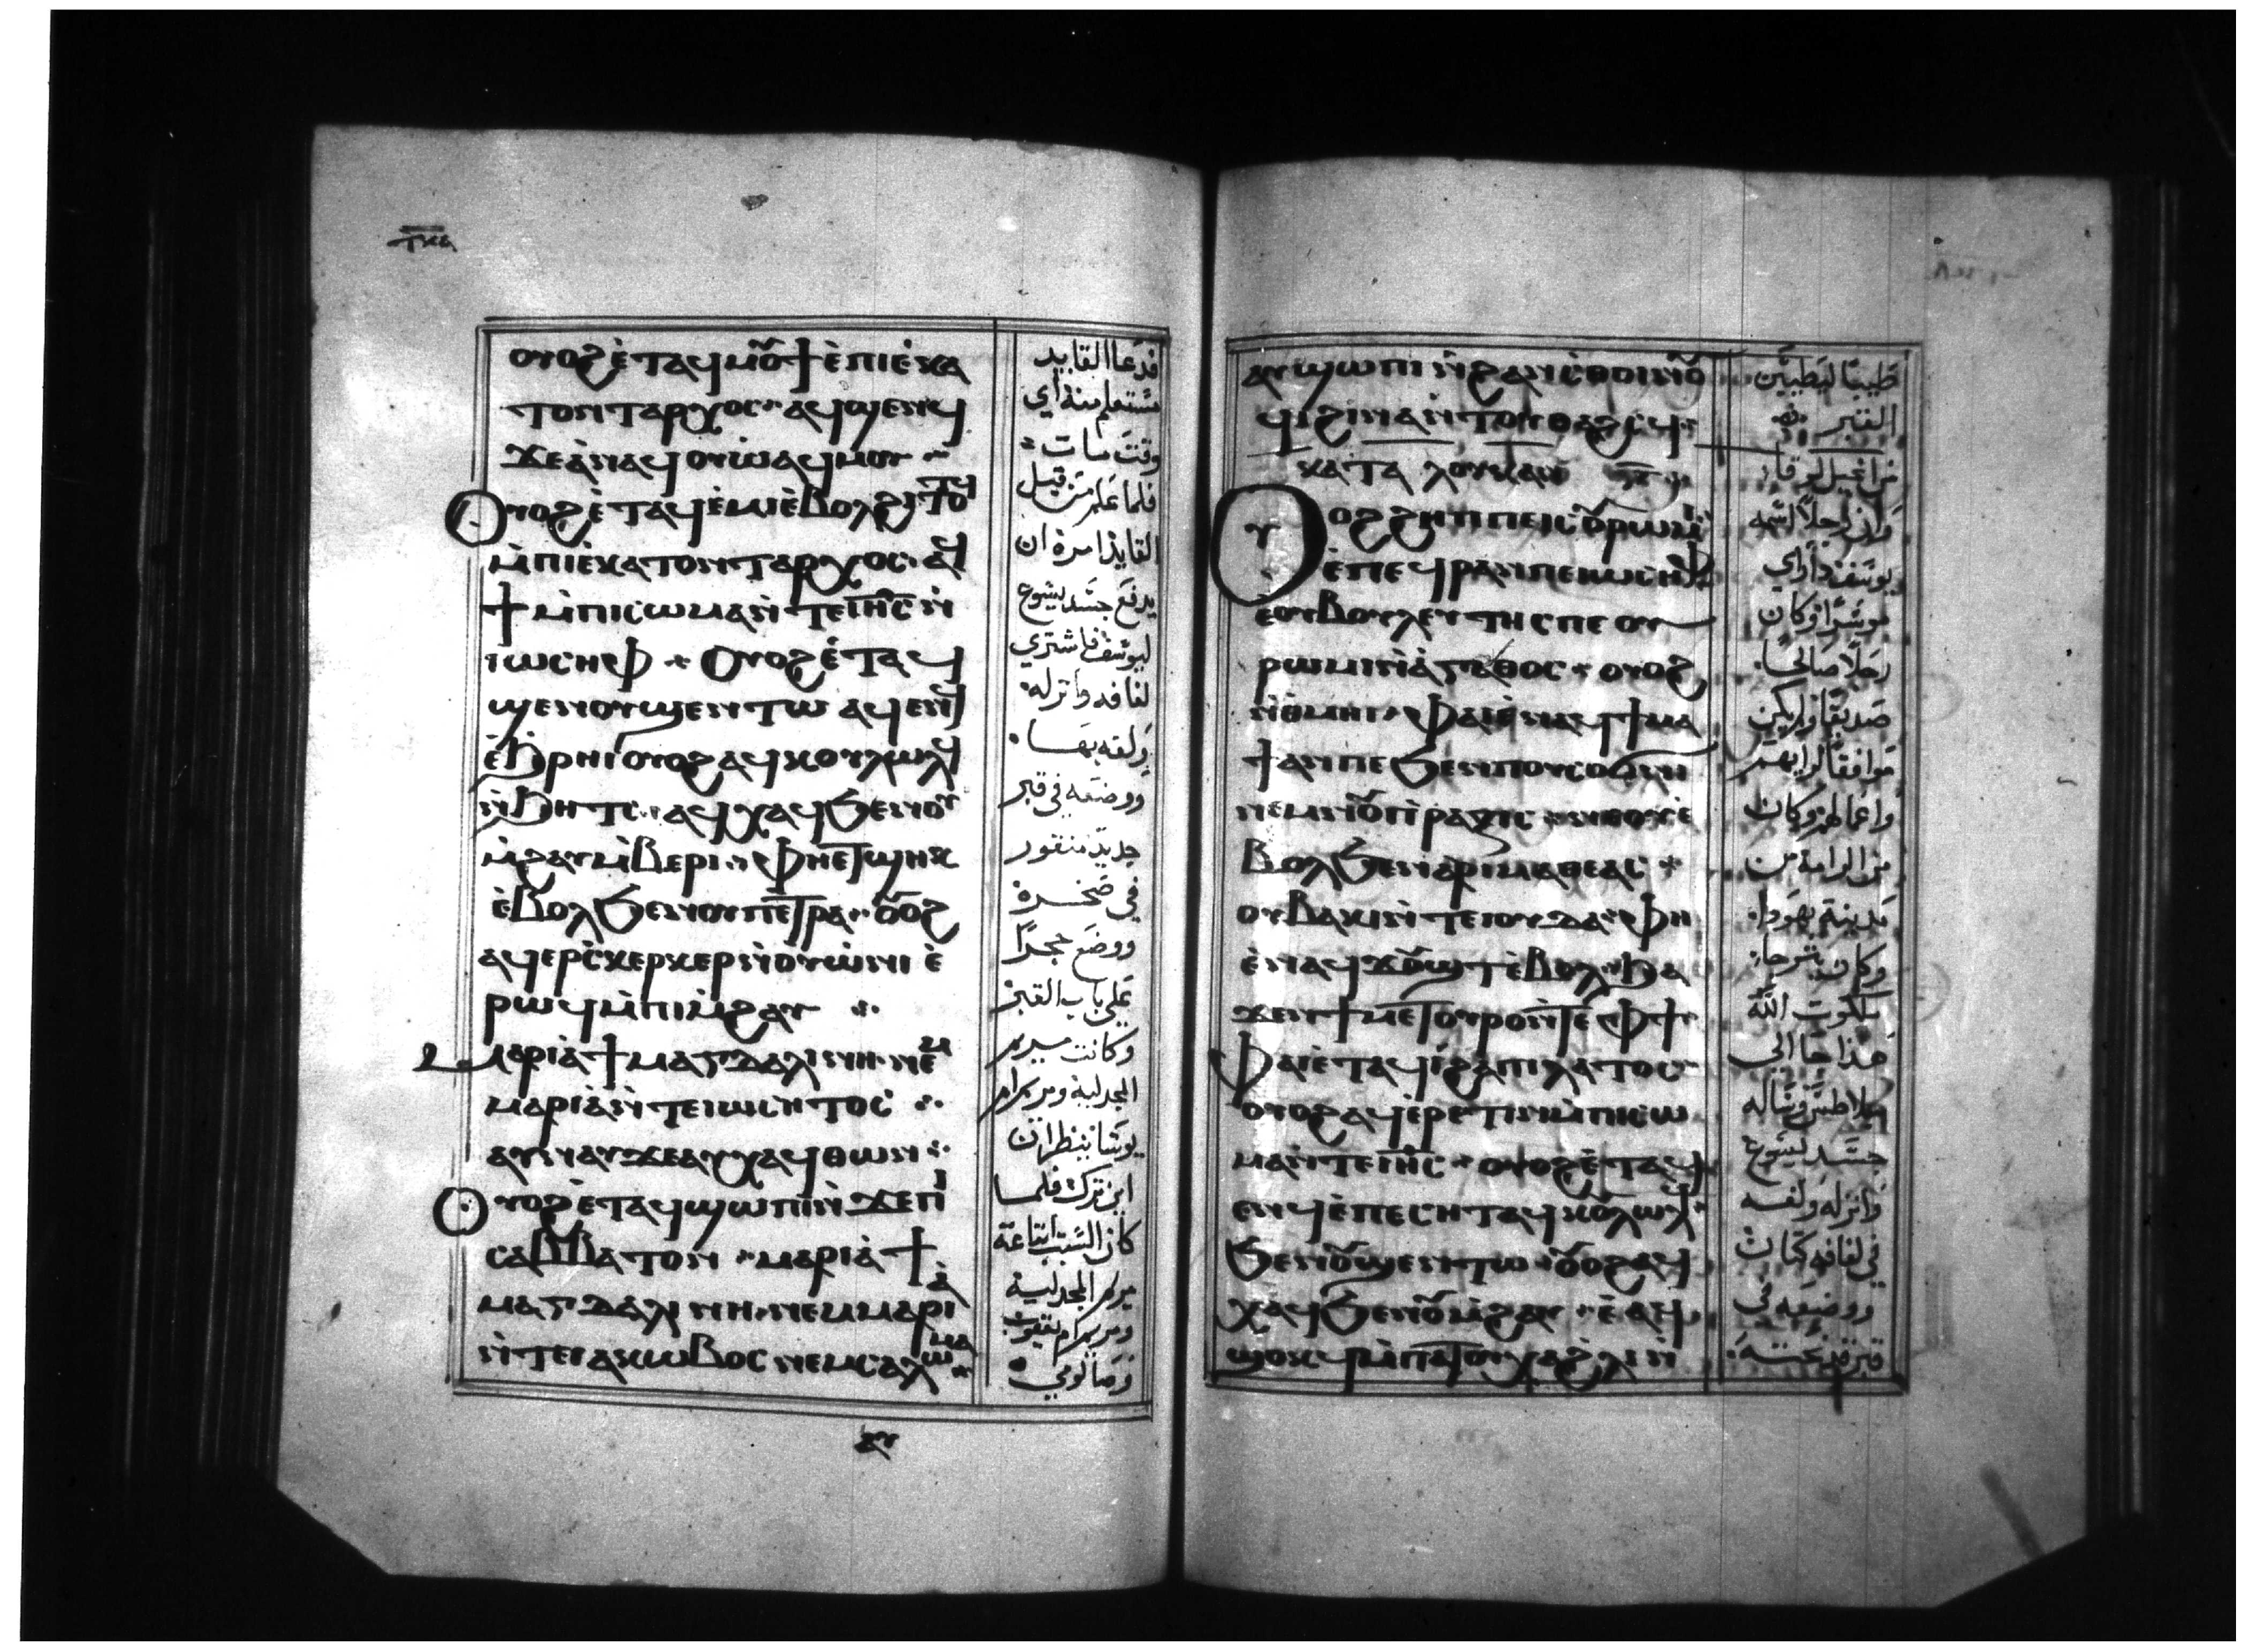 ⲧⲕⲁ
ⲟⲩⲟϩ ⲉ̀ⲧⲁϥⲙⲟⲩϯ ⲉ̀ⲡⲓⲉ̀ⲕⲁ
ⲧⲟⲛⲧⲁⲣⲭⲟⲥ ⲁϥϣⲉⲛϥ
ϫⲉ ⲁ̀ⲛ ⲁϥⲟⲩⲱ ⲁϥⲙⲟⲩ
ⲟⲩⲟϩ ⲉ̀ⲧⲁϥⲉ̀ⲙⲓ ⲉ̀ⲃⲟⲗϩⲓⲧⲟⲧϥ
ⲙ̀ⲡⲓⲉ̀ⲕⲁⲧⲟⲛⲧⲁⲣⲭⲟⲥ ⲁϥ
ϯ ⲙ̀ⲡⲓⲥⲱⲙⲁ ⲛ̀ⲧⲉ ⲓⲏ̅ⲥ̅ ⲛ̀
ⲓⲱⲥⲏⲫ ⲟⲩⲟϩ ⲉ̀ⲧⲁϥ
ϣⲉⲛ ⲟⲩϣⲉⲛⲧⲱ ⲁϥⲉⲛϥ
ⲉ̀ϧⲣⲏⲓ ⲟⲩⲟϩ ⲁϥⲕⲟⲩⲗⲱⲗϥ
ⲛ̀ϧⲏⲧⲥ ⲁϥⲭⲁϥ ϧⲉⲛ ⲟⲩ
ⲙ̀ϩⲁⲩ ⲙ̀ⲃⲉⲣⲓ ⲫⲏⲉⲧϣⲏⲕ
ⲉ̀ⲃⲟⲗ ϧⲉⲛ ⲟⲩⲡⲉⲧⲣⲁ ⲟⲩⲟϩ
ⲁϥⲉⲣⲥ̀ⲕⲉⲣⲕⲉⲣ ⲛ̀ⲟⲩⲱ̀ⲛⲓ ⲉ̀
ⲣⲱϥ ⲙ̀ⲡⲓⲙ̀ϩⲁⲩ
ⲙⲁⲣⲓⲁ̀ ϯⲙⲁⲅⲇⲁⲗⲓⲛⲏ ⲛⲉⲙ
ⲙⲁⲣⲓⲁ̀ ⲛ̀ⲧⲉ ⲓⲱⲥⲏⲧⲟⲥ
ⲁⲩⲛⲁⲩ ϫⲉ ⲁⲩⲭⲁϥ ⲑⲱⲛ
ⲟⲩⲟϩ ⲉ̀ⲧⲁϥϣⲱⲡⲓ ⲛ̀ϫⲉ ⲡⲓ
ⲥⲁⲃⲃⲁⲧⲟⲛ ⲙⲁⲣⲓⲁ̀ ϯ
ⲙⲁⲅⲇⲁⲗⲓⲛⲏ ⲛⲉⲙ ⲙⲁⲣⲓⲁ̀
ⲛ̀ⲧⲉ ⲓⲁⲕⲱⲃⲟⲥ ⲛⲉⲙ ⲥⲁⲗⲱⲙⲏ
ⲁⲩ
فدعا القايد
يستعلم منه اي
وقت مات
فلما علم من قبل
القايد امره ان
يدفع جسد يسوع
ليوسف فاشتري
لفافه وانزله
ولفه بها
ووضعه في قبر
جديد منقور
في صخره
ووضع حجرا
علي باب القبر
وكانت مريم
المجدلية ومريم ام
يوسا ينظران
اين ترك فلما
كان السبت ابتاعت
مريم المجدلية
ومريم ام يعقوب
وصالومي
ⲁⲩϣⲱⲡⲓ ⲛ̀ϩⲁⲛⲥ̀ⲑⲟⲓⲛⲟⲩ
ϥⲓ ϩⲓⲛⲁ ⲛ̀ⲧⲟⲩⲑⲁϩⲥϥ
ⲕⲁⲧⲁ ⲗⲟⲩⲕⲁⲛ
ⲟⲩⲟϩ ϩⲏⲡⲡⲉ ⲓⲥ ⲟⲩⲣⲱⲙⲓ
ⲉ̀ⲡⲉϥⲣⲁⲛ ⲡⲉ ⲓⲱⲥⲏⲫ
ⲉ̀ⲟⲩⲃⲟⲩⲗⲉⲩⲧⲏⲥ ⲡⲉ ⲟⲩ
ⲣⲱⲙⲓ ⲛ̀ⲁ̀ⲅⲁⲑⲟⲥ ⲟⲩⲟϩ
ⲛ̀ⲑⲙⲏⲓ ⲫⲁⲓ ⲉ̀ⲛⲁϥϯⲙⲁ
ϯ ⲁⲛ ⲡⲉ ϧⲉⲛ ⲡⲟⲩⲥⲟϭⲛⲓ
ⲛⲉⲙ ⲛⲟⲩⲡⲣⲁⲝⲓⲥ ⲉ̀
ⲃⲟⲗ ϧⲉⲛ ⲁⲣⲓⲙⲁⲑⲉⲁⲥ
ⲟⲩⲃⲁⲕⲓ ⲛ̀ⲧⲉ ⲓⲟⲩⲇⲁ ⲫⲏ
ⲉ̀ⲛⲁϥϫⲟⲩϣⲧ ⲉ̀ⲃⲟⲗ ϧⲁ
ϫⲉⲛ ϯⲙⲉⲧⲟⲩⲣⲟ ⲛ̀ⲧⲉ ⲫϯ
ⲫⲁⲓ ⲉ̀ⲧⲁϥⲓ̀ ϩⲁ ⲡⲓⲗⲁⲧⲟⲥ
ⲟⲩⲟϩ ⲁϥⲉ̀ⲣⲉⲧⲓⲛ ⲙ̀ⲡⲓⲥⲱ
ⲙⲁ ⲛ̀ⲧⲉ ⲓⲏ̅ⲥ̅ ⲟⲩⲟϩ ⲉ̀ⲧⲁϥ
ⲉⲛϥ ⲉ̀ⲡⲉⲥⲏⲧ ⲁϥⲕⲟⲩⲗⲱⲗϥ
ϧⲉⲛ ⲟⲩϣⲉⲛⲧⲱ ⲟⲩⲟϩ ⲁϥ
ⲭⲁϥ ϧⲉⲛ ⲟⲩⲙ̀ϩⲁⲩ ⲉ̀ⲁϥ
ϣⲟⲕϥ ⲙ̀ⲡⲁⲧⲟⲩⲭⲁ ϩⲗⲓ ⲛ̀
طيبا ليطيبن
القبر
من انجيل لوقا
وان رجلا اسمه
يوسف ذا راي
موسرا وكان
رجلا صالحا
صديقا ولم يكن
موافقا لرايهم
واعمالهم وكان
من الرامة من
مدينة يهودا
وكان يترجا
ملكوت الله
هذا جا الي
بيلاطس وساله
جسد يسوع
وانزله ولفه
في لفافه كتان
ووضعه في
قبر قد نحته